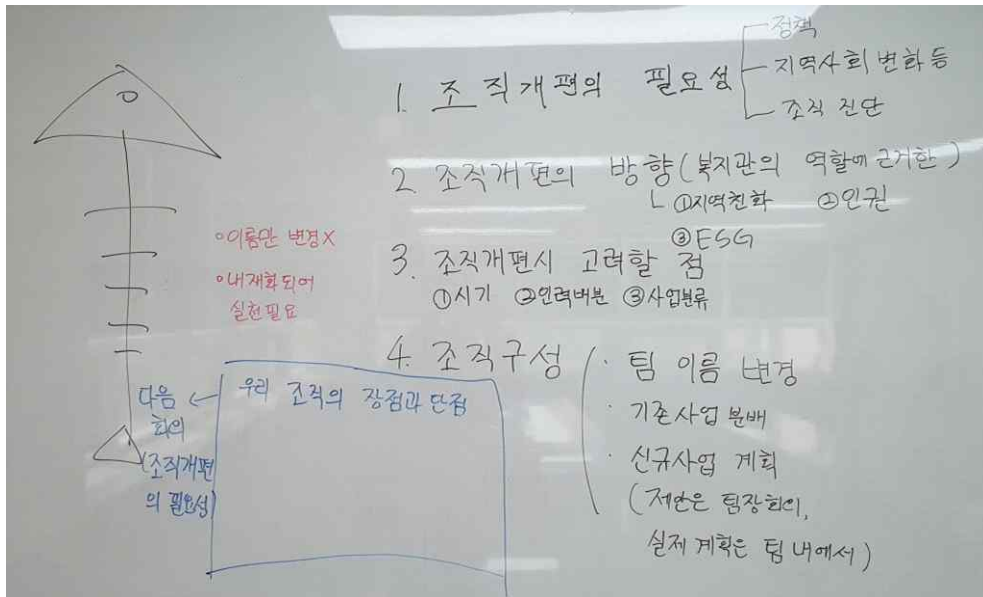 1. 조직개편의 필요성
정책
지역사회 변화 등
조직 진단
2. 조직개편의 방향(복지관의 역할에 근거한)
①지역친화 ②인권
③ESG
3. 조직개편시 고려할 점
①시기 ②인력배분 ③사업분류
4. 조직구성
· 팀 이름 변경
· 기존사업 분배
· 신규사업 계획
(제안은 팀장회의,
실제 계획은 팀 내에서)
∘이름만 변경X
∘내재화되어
실천필요
우리 조직의 장점과 단점
다음
회의
(조직개편
의 필요성)